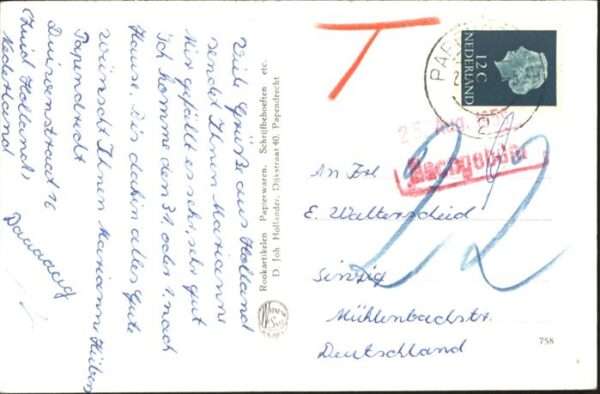 Viele Grüße aus Holland
sendet Ihnen Marianne
Mir gefällt es sehr, sehr gut
Ich komme den 31. oder 1. nach
Hause, bis dahin alles Gute
wünscht Ihnen Marianne
Papendrecht
Duivenstraat
Zuid Holland
Nederland
Rookartikelen Papierwaren, Schrijfbehoeften etc.
D. Joh Hollander, Dijkstraat 40, Papendrecht
T
NEDERLAND
12 C
PAP
25 Aug.
Nachgebühr
22
An Frl
E. Walterscheid
Sinzig
Mühlenbachstr.
Deutschland
758